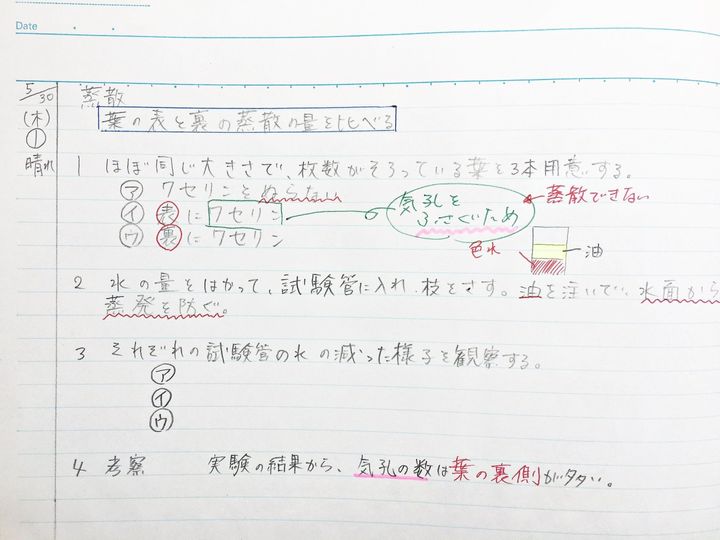 Date
5/30
(木)
①
晴れ
蒸散
葉の表と裏の蒸散の量を比べる
1 ほぼ同じ大きさで、枚数がそろっている葉を3本用意する。
㋐ ワセリンをぬらない
㋑ 表にワセリン
㋒ 裏にワセリン
気孔を
ふさぐため
蒸散できない
色水
油
2 水の量をはかって、試験管に入れ、枝をさす。油を注いで、水面から
蒸発を防ぐ。
3 それぞれの試験管の水の減った様子を観察する。
㋐
㋑
㋒
4 考察 実験の結果から、気孔の数は葉の裏側が多い。